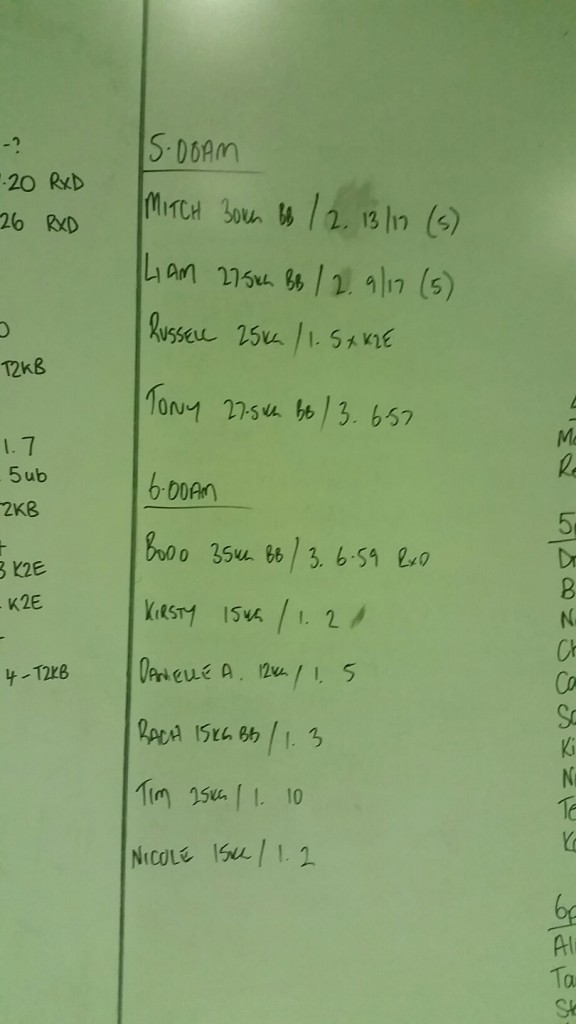 -?
.20 RXD
26 RXD
T2KB
1.7
5 ub
2KB
3 K2E
. K2E
4 - T2KB
5.00AM
MITCH 30KG BB / 2. 13/17 (5)
LIAM 27.5KG BB / 2. 9/17 (5)
RUSSELL 25KG / 1. 5 x K2E
TONY 27.5KG BB / 3. 6.57
6.00AM
BODO 35KG BB / 3. 6.59 RXD
KIRSTY 15KG / 1. 2
DANIELLE A. 12KG / 1. 5
RACH 15KG BB / 1. 3
TIM 25KG / 1. 10
NICOLE 15KG / 1. 2
Mo
Re
5p
Dr
B
N
Ch
Co
Sc
Ki
Ni
Te
Ke
6p
Ali
Ta
Sk